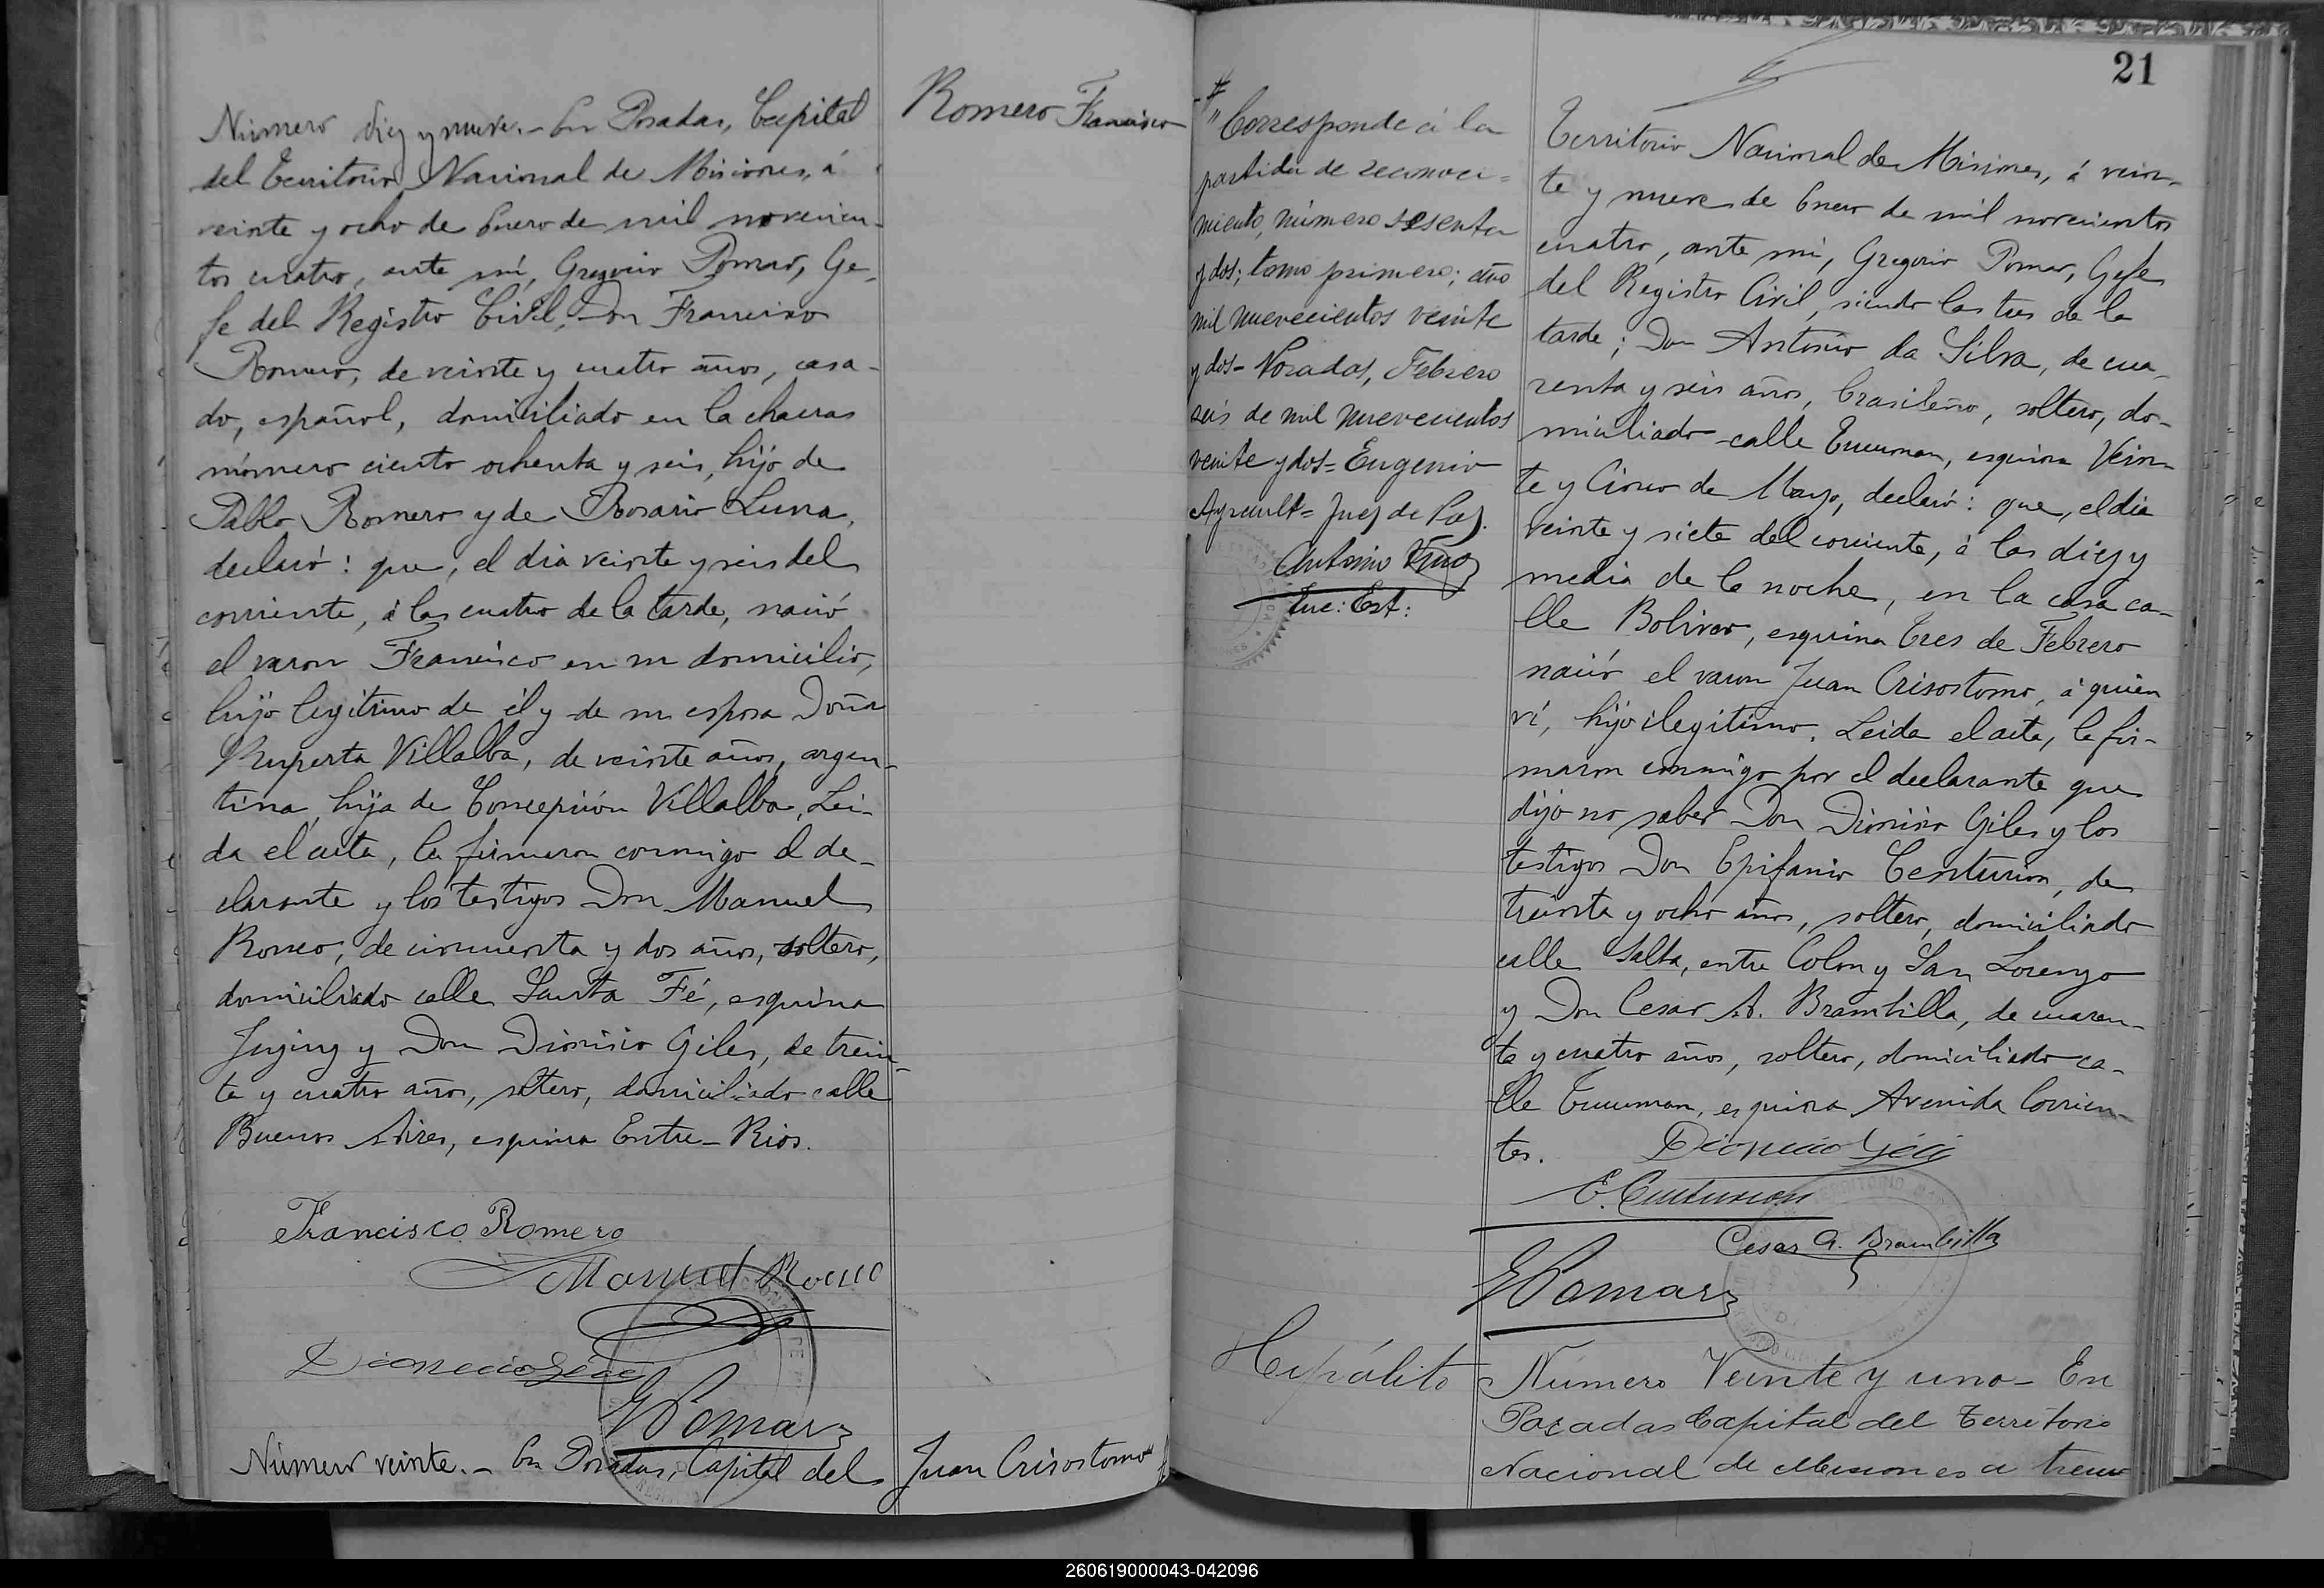 Número diez y nueve. - En Posadas, Capital
del Territorio Nacional de Misiones, á
veinte y ocho de Enero de mil novecien-
tos cuatro, ante mí, Gregorio Pomar, Ge-
fe del Registro Civil, Don Francisco
Romero, de veinte y cuatro años, casa-
do, español, domiciliado en la chacras
número ciento ochenta y seis, hijo de
Pablo Romero y de Rosario Luna,
declaró: que, el dia veinte y seis del
corriente, á las cuatro de la tarde, nació
el varon Francisco en su domicilio,
hijo legítimo de él y de su esposa Doña
Ruperta Villalba, de veinte años, argen-
tina, hija de Concepción Villalba. Lei-
da el acta, la firmaron conmigo el de-
clarante y los testigos Don Manuel
Romeo, de cincuenta y dos años, soltero,
domiciliado calle Santa Fé, esquina
Jujuy y Don Dionisio Giles, de trein-
ta y cuatro años, soltero, domiciliado calle
Buenos Aires, esquina Entre-Rios.
Francisco Romero
Manuel Romeo
Dionicio Giles
GPomar
Número veinte. - En Posadas, Capital del
Romero Francisco
Juan Crisostomo
"Corresponde á la
partida de reconoci=
miento, número sesenta
y dos; tomo primero; año
mil nuevecientos veinte
y dos - Posadas, Febrero
seis de mil nuevecientos
veinte y dos = Eugenio
Ayrault = Juez de Paz.
Antonio
Enc: Est:
21
Territorio Nacional de Misiones, á vein-
te y nueve de Enero de mil novecientos
cuatro, ante mí, Gregorio Pomar, Gefe
del Registro Civil, siendo las tres de la
tarde; Don Antonio da Silva, de cua-
renta y seis años, brasileño, soltero, do-
miciliado calle Tucuman, esquina Vein-
te y Cinco de Mayo, declaró: que, el dia
veinte y siete del corriente, á las diez y
media de la noche, en la casa ca-
lle Bolivar, esquina Tres de Febrero
nació el varon Juan Crisostomo, á quien
ví, hijo ilegítimo. Leida el acta, la fir-
maron conmigo por el declarante que
dijo no saber Don Dionisio Giles y los
testigos Don Epifanio Centurion, de
treinta y ocho años, soltero, domiciliado
calle Salta, entre Colon y San Lorenzo
y Don Cesar A. Brambilla, de cuaren-
ta y cuatro años, soltero, domiciliado ca-
lle Tucuman, esquina Avenida Corrien-
tes. Dionicio Giles
E. Centurion
Cesar A. Brambilla
GPomar
Hipólito
Número Veinte y uno - En
Posadas Capital del Territorio
Nacional de Misiones a trein
260619000043-042096